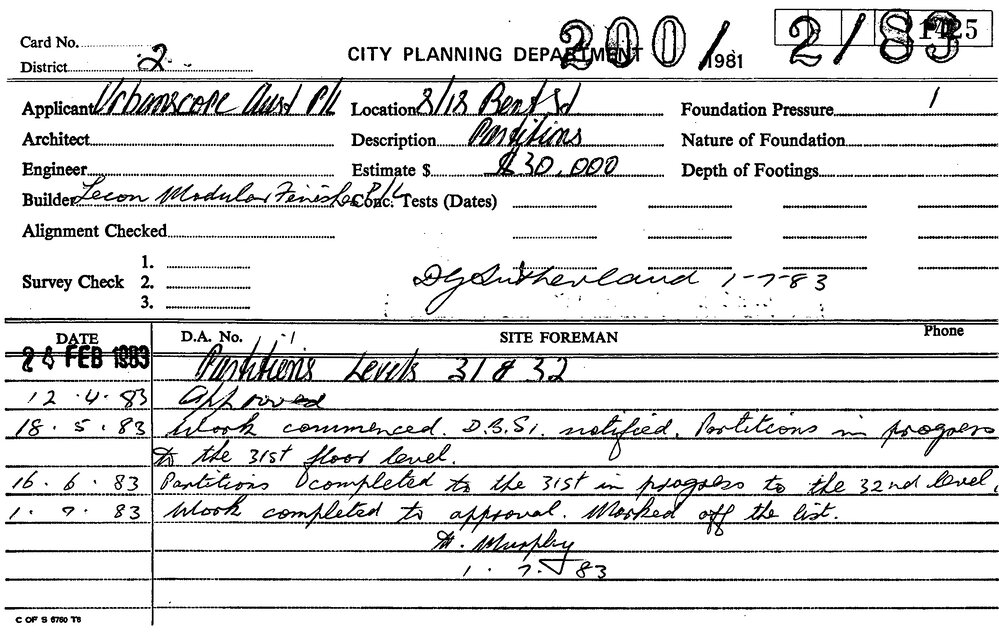 Card No.
District 2
CITY PLANNING DEPARTMENT 200/1981 2/83 1425
Applicant Urbanscope Aust P/L Location 8/18 Bent St Foundation Pressure 1
Architect Description Partitions Nature of Foundation
Engineer Estimate $ $30,000 Depth of Footings
Builder Lecon Modular Finishes P/L Conc. Tests (Dates)
Alignment Checked
1.
Survey Check 2. DG Sutherland 1-7-83
3.
DATE D.A. No. SITE FOREMAN Phone
24 FEB 1983 Partitions Levels 31 & 32
12.4.83 Approved
18.5.83 Work commenced. D.B.S. notified. Partitions in progress
to the 31st floor level.
16.6.83 Partitions completed to the 31st in progress to the 32nd level.
1.7.83 Work completed to approval. Marked off the list.
M. Murphy
1.7.83
C OF S 6760 T8